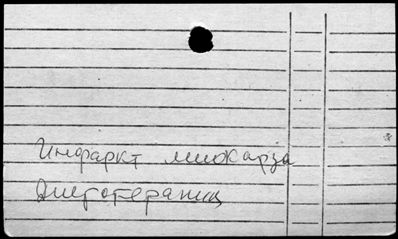 Инфаркт миокарда
Диетотерапия